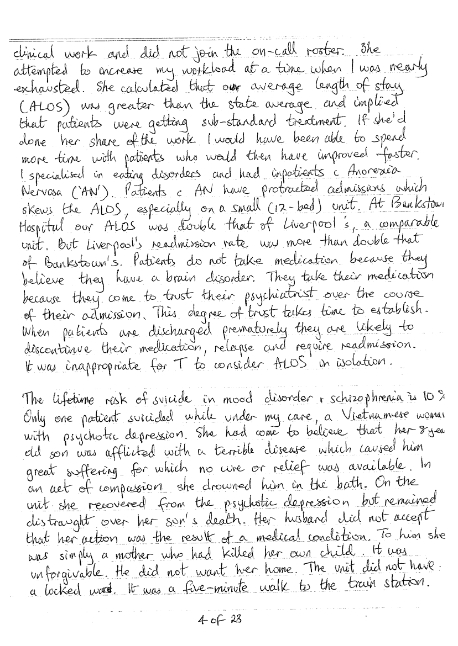 clinical work and did not join the on-call roster. She
attempted to increase my workload at a time when I was nearly
exhausted. She calculated that our average length of stay
(ALOS) was greater than the state average and implied
that patients were getting sub-standard treatment. If she'd
done her share of the work I would have been able to spend
more time with patients who would then have improved faster.
I specialised in eating disorders and had inpatients c Anorexia
Nervosa ('AN'). Patients c AN have protracted admissions which
skews the ALOS, especially on a small (12-bed) unit. At Bankstown
Hospital our ALOS was double that of Liverpool's, a comparable
unit. But Liverpool's readmission rate was more than double that
of Bankstown's. Patients do not take medication because they
believe they have a brain disorder. They take their medication
because they come to trust their psychiatrist over the course
of their admission. This degree of trust takes time to establish.
When patients are discharged prematurely they are likely to
discontinue their medication, relapse and require readmission.
It was inappropriate for T to consider ALOS in isolation.
The lifetime risk of suicide in mood disorder & schizophrenia is 10%
Only one patient suicided while under my care, a Vietnamese woman
with psychotic depression. She had come to believe that her 8 year
old son was afflicted with a terrible disease which caused him
great suffering for which no cure or relief was available. In
an act of compassion she drowned him in the bath. On the
unit she recovered from the psychotic depression but remained
distraught over her son's death. Her husband did not accept
that her action was the result of a medical condition. To him she
was simply a mother who had killed her own child. It was
unforgivable. He did not want her home. The unit did not have
a locked ward. It was a five-minute walk to the train station.
4 of 23